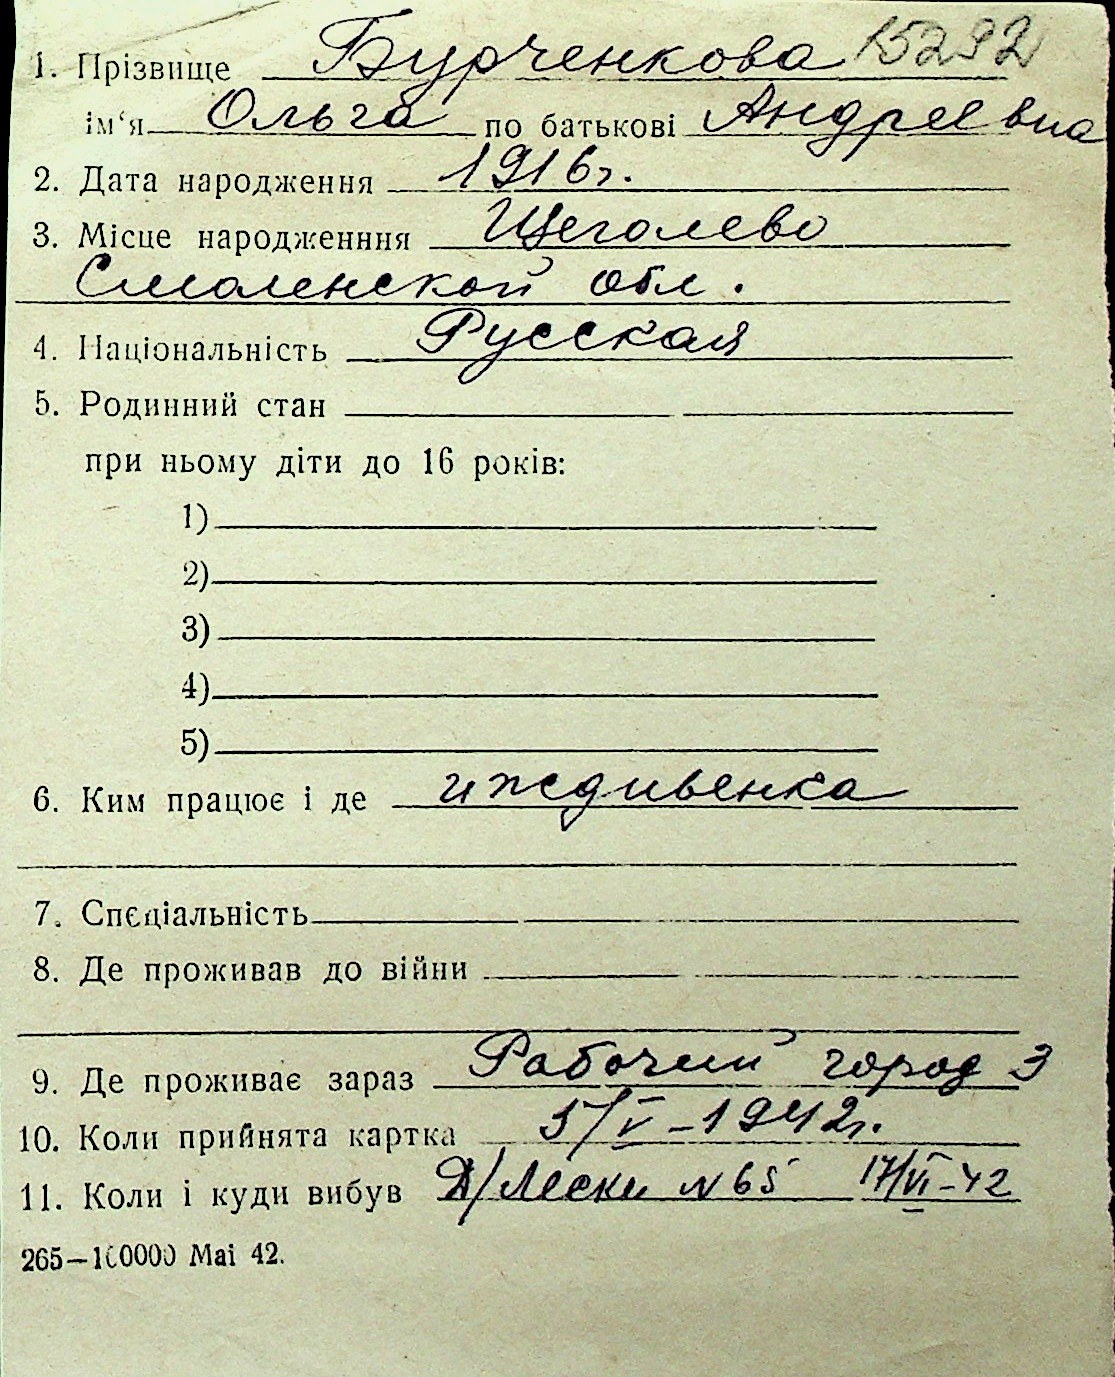 1. Прізвище Бурченкова 15292
ім‘я Ольга по батькові Андреевна
2. Дата народження 1916 г.
3. Місце народженння Щеголево
Смоленской обл.
4. Національність Русская
5. Родинний стан
при ньому діти до 16 років:
1)
2)
3)
4)
5)
6. Ким працює і де иждивенка
7. Спеціальність
8. Де проживав до війни
9. Де проживає зараз Рабочий город 3
10. Коли прийнята картка 5/V-1942г.
11. Коли і куди вибув Д/Лески N 65 17/VI-42
265—100000 Mai 42.